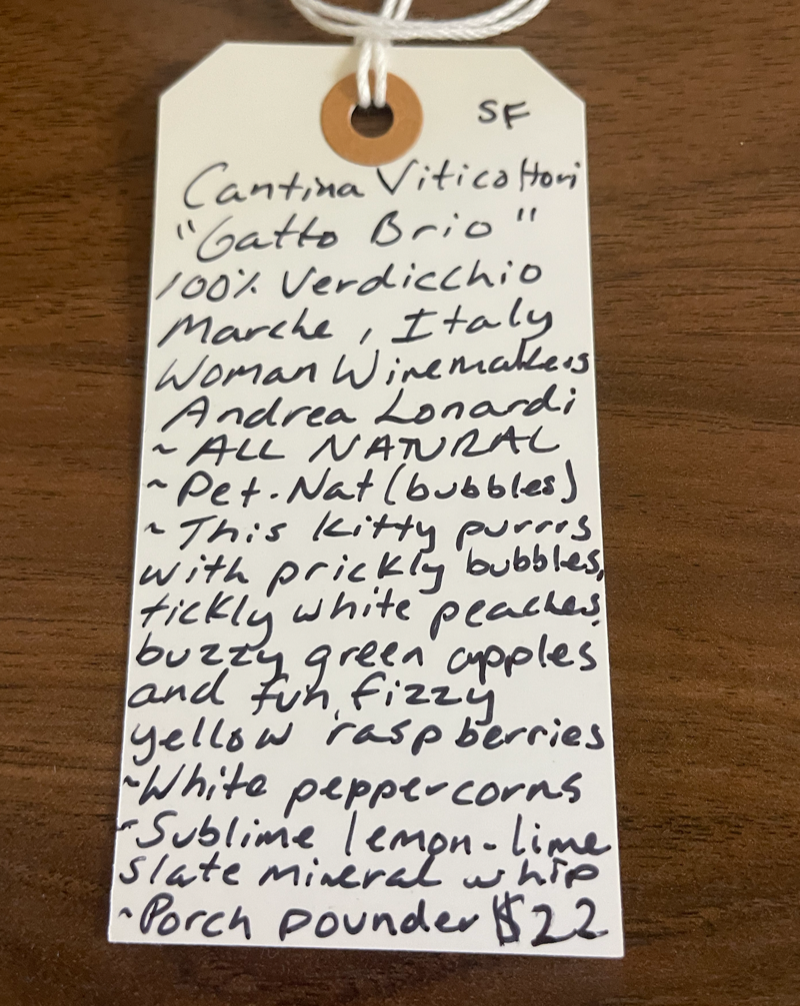 SF
Cantina Viticoltori
"Gatto Brio"
100% Verdicchio
Marche, Italy
Woman Winemakers
Andrea Lonardi
~ ALL NATURAL
~ Pet. Nat (bubbles)
~ This kitty purrrs
with prickly bubbles,
tickly white peaches,
buzzy green apples
and fun, fizzy
yellow raspberries
~ White peppercorns
~ Sublime lemon-lime
slate mineral whip
~ Porch pounder $22